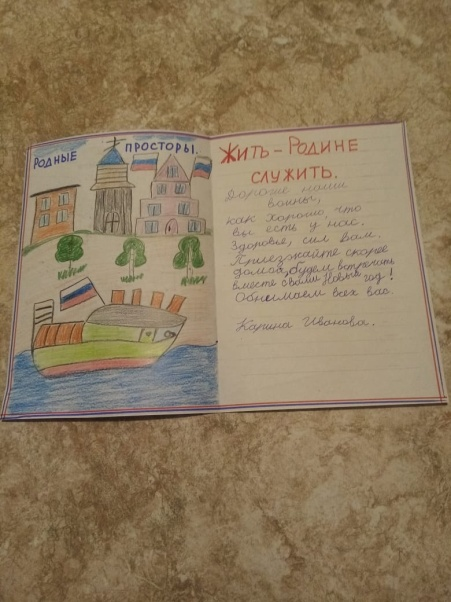 РОДНЫЕ ПРОСТОРЫ.
ЖИТЬ – РОДИНЕ
СЛУЖИТЬ.
Дорогие наши
воины,
как хорошо, что
вы есть у нас.
Здоровья, сил вам.
Приезжайте скорее
домой, будем встречать
вместе с вами Новый год!
Обнимаем всех вас.
Карина Иванова.